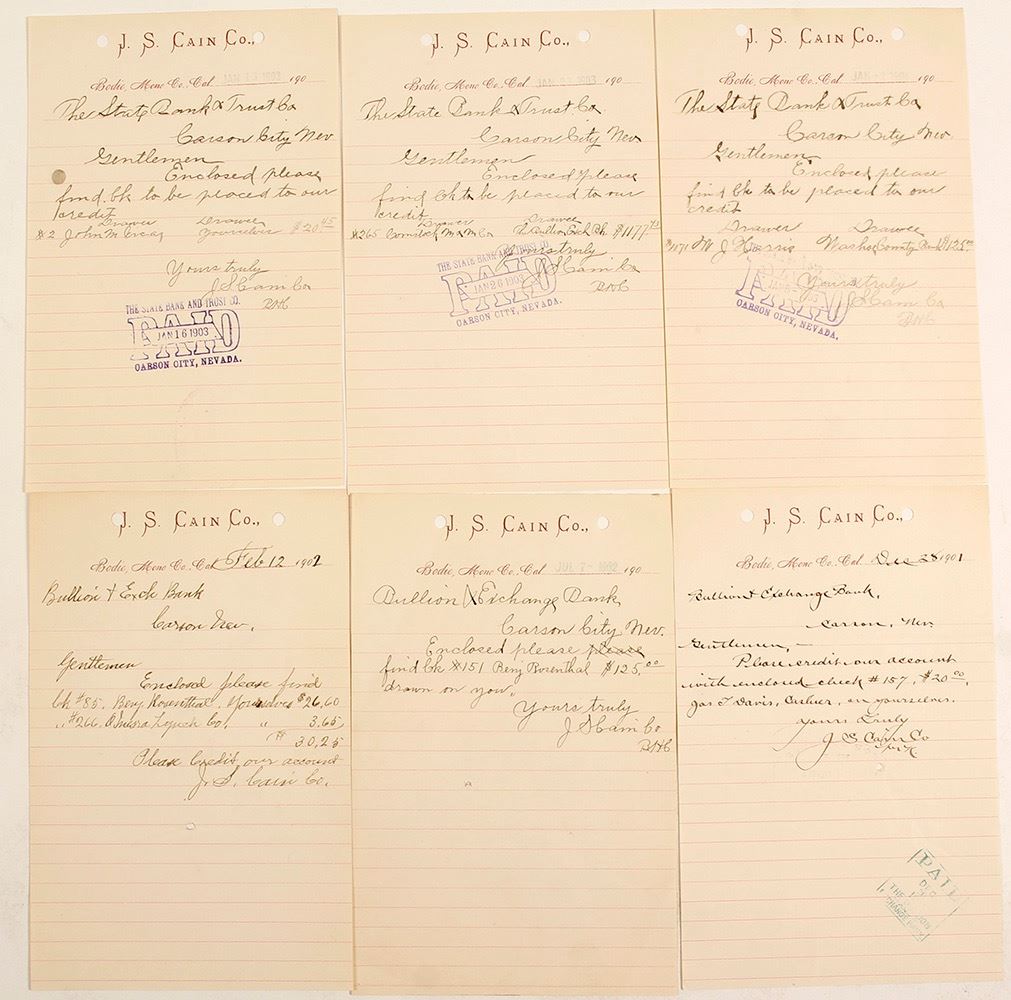 J. S. Cain Co.,
Bodie, Mono Co., Cal. JAN 15 1903 190
The State Bank & Trust Co
Carson City Nev
Gentlemen
Enclosed please
find ck to be placed to our
credit
Drawer Drawee
#2 John M. Yourselves $20.45
Yours truly
J S Cain Co
THE STATE BANK AND TRUST CO.
PAID
JAN 16 1903
CARSON CITY, NEVADA.
J. S. Cain Co.,
Bodie, Mono Co., Cal. JAN 1903 190
The State Bank & Trust Co
Carson City Nev
Gentlemen
Enclosed please
find ck to be placed to our
credit
Drawer Drawee
#265 Comstock M & M Co The Bullion & Exch Bk. $1177
Yours truly
J S Cain Co
THE STATE BANK AND TRUST CO.
PAID
JAN 26 1903
CARSON CITY, NEVADA.
J. S. Cain Co.,
Bodie, Mono Co., Cal. JAN 190
The State Bank & Trust Co
Carson City Nev
Gentlemen
Enclosed please
find ck to be placed to our
credit
Drawer Drawee
#1171 M J Harris Washoe County Bank $125.00
Yours truly
J S Cain Co
PAID
CARSON CITY, NEVADA.
J. S. Cain Co.,
Bodie, Mono Co., Cal. Feb 12 1902
Bullion & Exch Bank
Carson Nev.
Gentlemen
Enclosed please find
Ck #85. Benj. Rosenthal. Yourselves $26.60
" #266. Co. " 3.65
30.25
Please Credit our account
J. S. Cain Co.
J. S. Cain Co.,
Bodie, Mono Co., Cal. JUL 7- 1902 190
Bullion & Exchange Bank
Carson City Nev.
Enclosed please please
find Ck #151 Benj Rosenthal $125.00
drawn on you.
Yours truly
J S Cain Co
J. S. Cain Co.,
Bodie, Mono Co., Cal. Dec 28 1901
Bullion & Exchange Bank,
Carson, Nev.
Gentlemen, —
Please credit our account
with enclosed check #157, $20.00,
Jas T Davis, Cashier, on yourselves.
Yours truly
J S Cain Co
PAID
DEC
THE